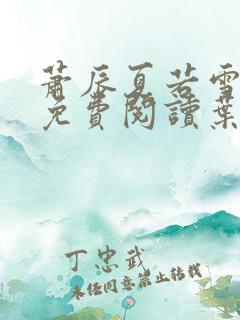 蕭辰夏若雪
免費閱讀葉
丁忠武
未經同意禁止轉載